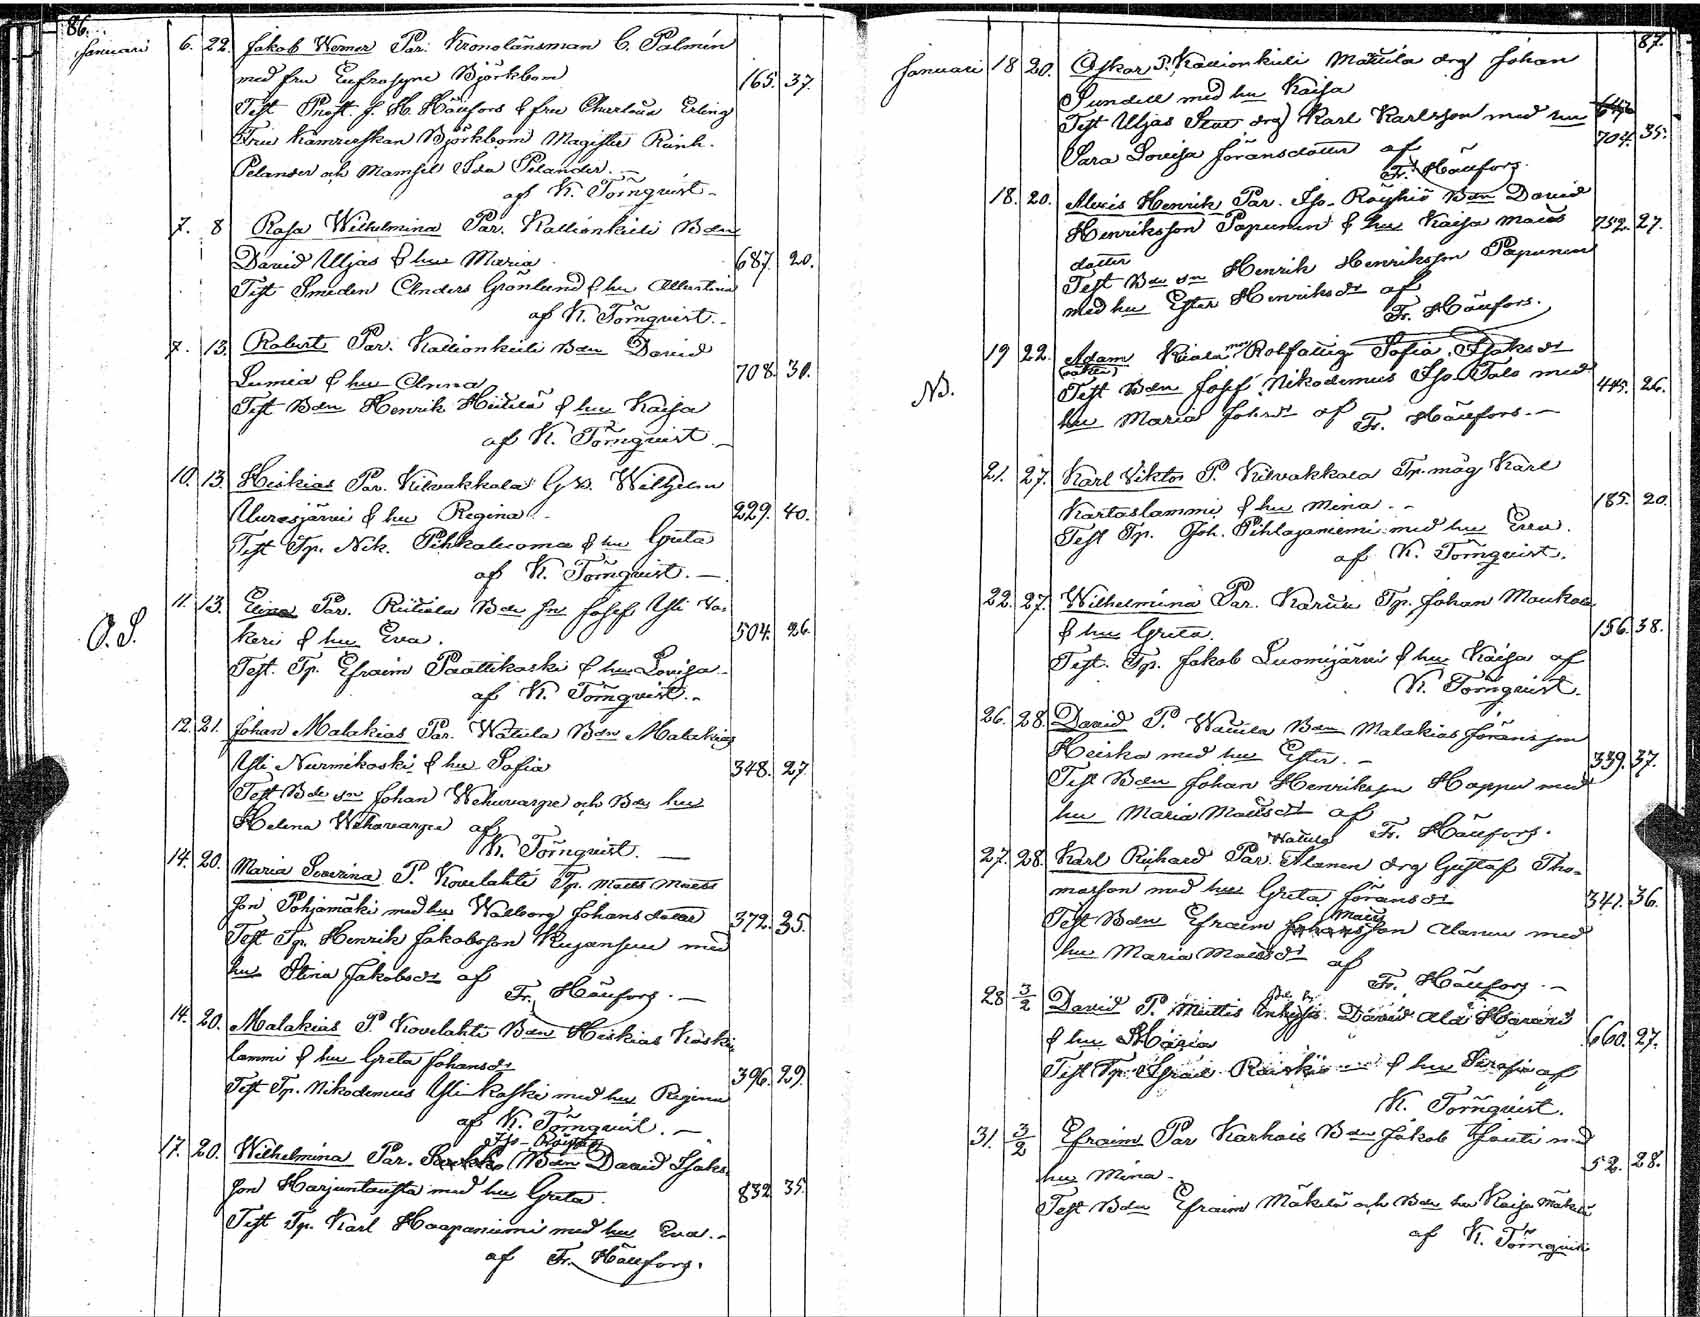 86.
Januari 6. 22. Jakob Werner Par. Kronolänsman C. Palmén
med fru Eufrosyne Björkbom 165. 37.
Test Prost. J. H. Hällfors & fru Charlotta Erling
Fru Kamrerskan Björkbom Magister Reinh.
Pelander och Mamsel Ida Pelander.
af K. Törnqvist
7. 8 Rosa Wilhelmina Par. Kallionkieli Bdn
David Uljas & hu Maria 687. 20.
Test Smeden Anders Grönlund & hu Albertina
af K. Törnqvist.
7. 13. Robert Par. Kallionkieli Bdn David
Lumia & hu Anna 708. 30.
Test Bdn Henrik Heikkilä & hu Kaisa
af K. Törnqvist.
10. 13. Heskias Par. Kilvakkala G. Wilhelm
Uuresjärvi & hu Regina. 229. 40.
Test Tp. Nik. Pihkaluoma & hu Greta
af K. Törnqvist.
O.S. 11. 13. Elina Par. Riitiala Bde sn Josef Yli Va-
keri & hu Eva. 504. 26.
Test. Tp. Efraim Paattikoski & hu Lovisa
af K. Törnqvist.
12. 21. Johan Malakias Par. Watula Bdn Malakias
Yli Nurmikoski & hu Sofia 348. 27.
Test Bde son Johan Wehuvarpe och Bde hu
Helena Wehuvarpe af
K. Törnqvist.
14. 20. Maria Severina P. Kovelahti Tp. Matts Matts
son Pohjamäki med hu Walborg Johansdotter 372. 25.
Test Tp. Henrik Jakobsson Kujansuu med
hu Stina Jakobsdr af
Fr. Hällfors.
14. 20. Malakias P Kovelahti Bdn Heskias Koski
lammi & hu Greta Johansdr 396. 29.
Test Tp. Nikodemus Yli Koski med hu Regina
af K. Törnqvist.
Iso-Röyhiö
17. 20. Wilhelmina Par. Bdn David Isaks-
son Harjuntausta med hu Greta. 832. 35.
Test Tp. Karl Haapaniemi med hu Eva.
af Fr. Hällfors.
87.
Januari 18 20. Oskar P. Kallionkieli Mattila drg Johan
Sundell med hu Kaisa
Test Uljas drg Karl Karlsson med hu 704. 35.
Sara Lovisa Göransdotter af
Fr. Hällfors.
18. 20. Alexis Henrik Par. Iso-Röyhiö Bdn David
Henriksson Papunen & hu Kaisa Matts 752. 27.
dotter
Test Bde sn Henrik Henriksson Papunen
med hu Ester Henriksdr af
Fr. Hällfors.
19 22. Adam Kiala Sofia Isaksdr
(oäkta)
N. Test Bdn Josef Nikodemus Iso-Talo med 445. 26.
hu Maria Johsdr af Fr. Hällfors.
21. 27. Karl Viktor P. Kilvakkala Tp. måg Karl
Kartoslammi & hu Mina. 185. 20.
Test Tp. Joh. Pihlajaniemi med hu Eva.
af K. Törnqvist.
22. 27. Wilhelmina Par. Karttu Tp. Johan Moukola
& hu Greta. 156. 38.
Test. Tp. Jakob Luomijärvi & hu Kaisa af
K. Törnqvist.
26. 28. David P. Watula Bdn Malakias Göransson
Heiska med hu Ester. 339. 37.
Test Bdn Johan Henriksson Hoppu med
hu Maria Mattsdr af
Fr. Hällfors.
Watula
27. 28. Karl Richard Par. Alanen drg Gustaf Tho-
masson med hu Greta Göransdr 341. 36.
Matts
Test Bdn Efraim son Alanen med
hu Maria Mattsdr af
Fr. Hällfors.
28 3/2 David P. David Ala
& hu Maria 660. 27.
Test Tp. & hu Serafia af
K. Törnqvist.
31. 3/2 Efraim Par Karhois Bdn Jakob med
hu Mina. 52. 28.
Test Bdn Efraim Mäkelä och Bde hu Kaisa Mäkelä
af K. Törnqvist